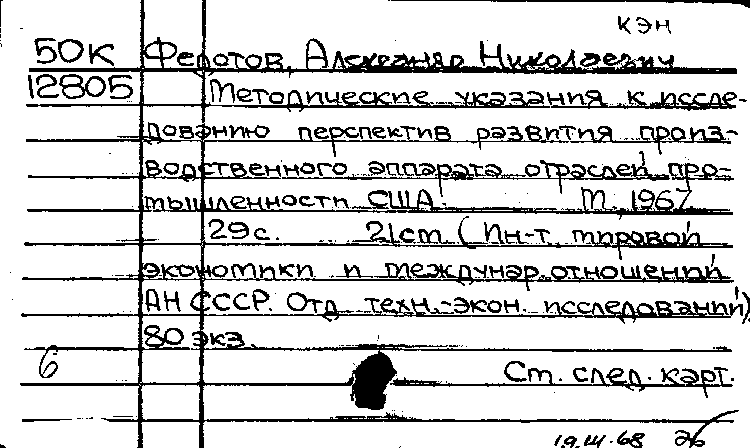 кэн
50К Федотов, Александр Николаевич
12805 Методические указания к иссле-
дованию перспектив развития произ-
водственного аппарата отраслей про-
мышленности США. М., 1967
29с. 21см (Ин-т мировой
экономики и междунар. отношений
АН СССР. Отд техн.-экон. исследований)
80 экз.
6 Ст. след. карт.
19.III.68